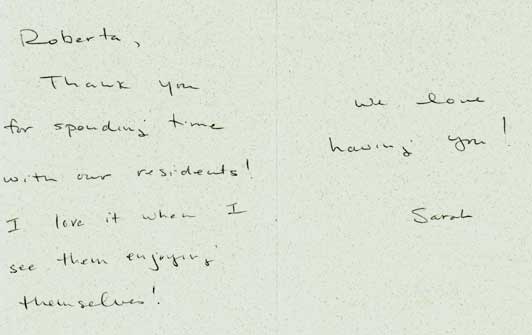 Roberta,
Thank you
for spending time
with our residents!
I love it when I
see them enjoying
themselves!
We love
having you!
Sarah